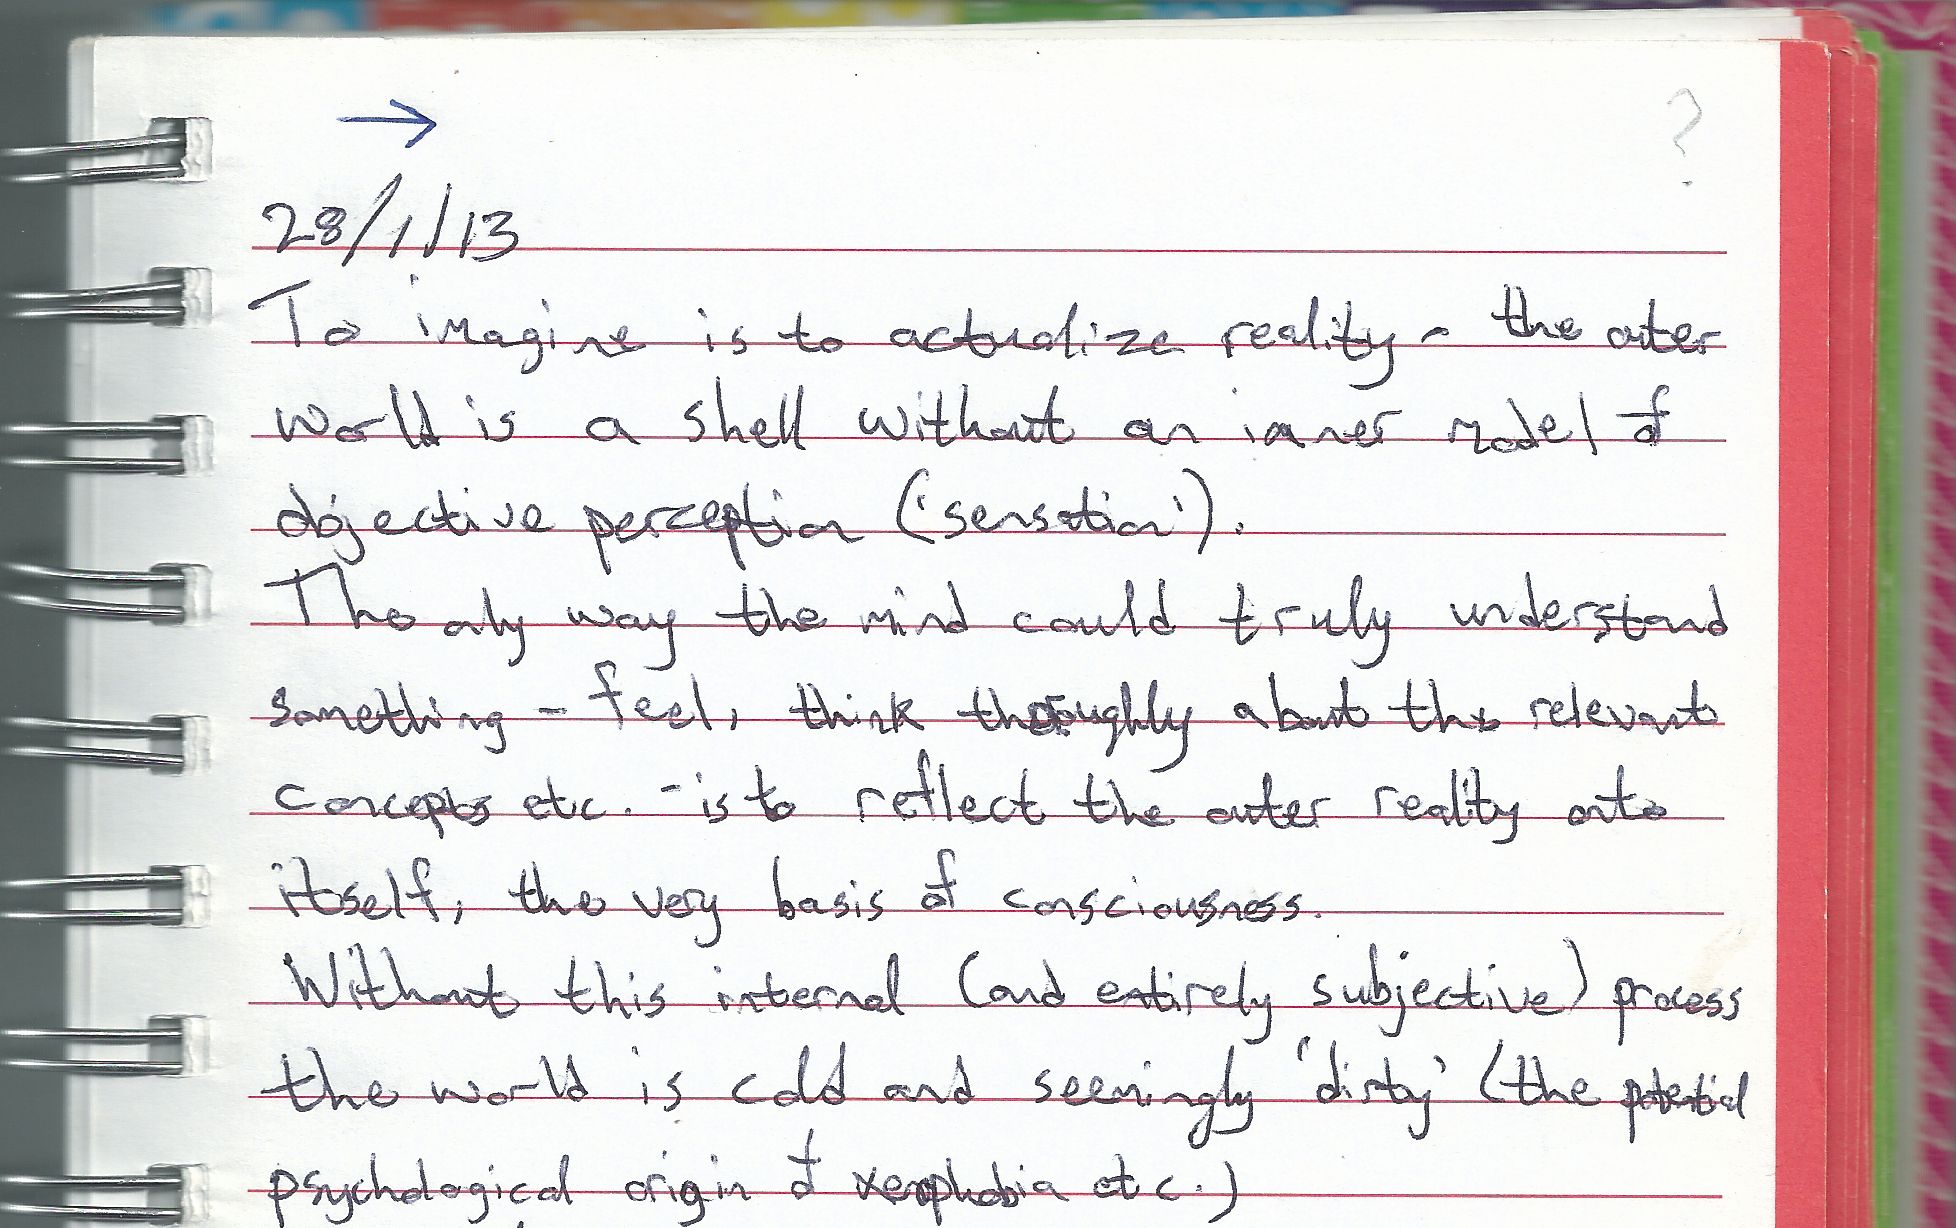 →
?
28/1/13
To imagine is to actualize reality - the outer
world is a shell without an inner model of
objective perception ('sensation').
The only way the mind could truly understand
something - feel, think thoroughly about the relevant
concepts etc. - is to reflect the outer reality onto
itself, the very basis of consciousness.
Without this internal (and entirely subjective) process
the world is cold and seemingly 'dirty' (the potential
psychological origin of xenophobia etc.)